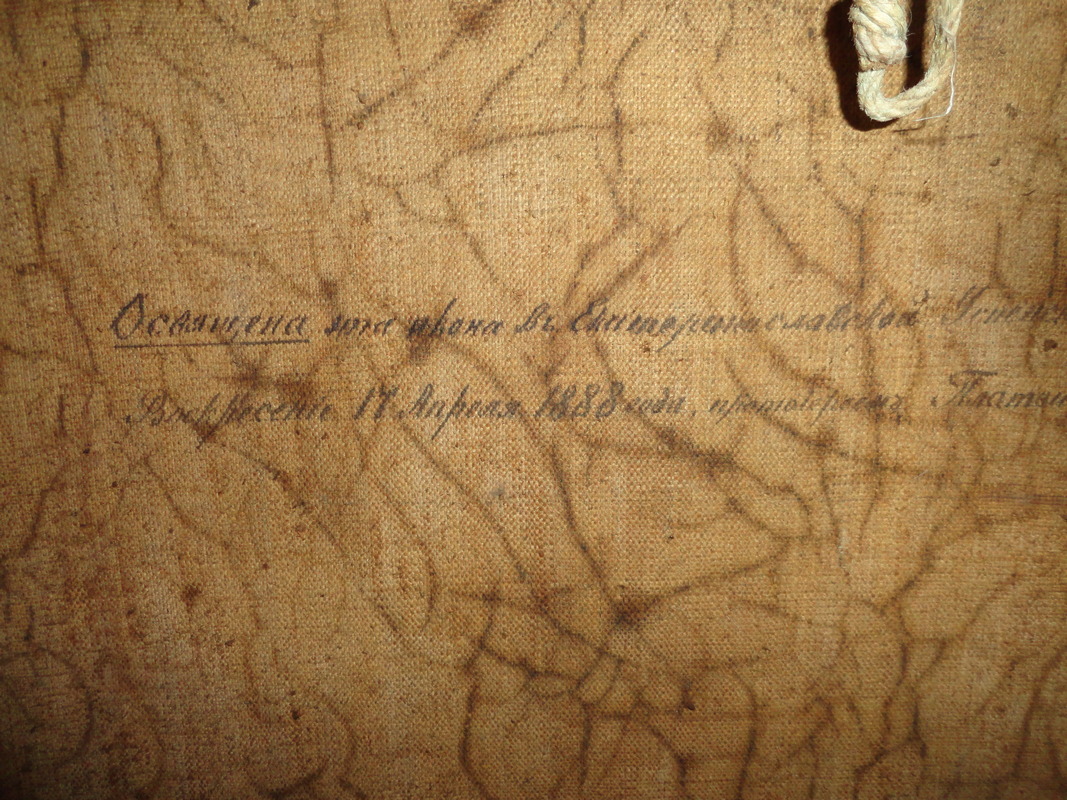 Освящена эта икона въ Екатеринославской Успен
Воскресени 17 Апреля 1888 года, протоіереемъ Платон